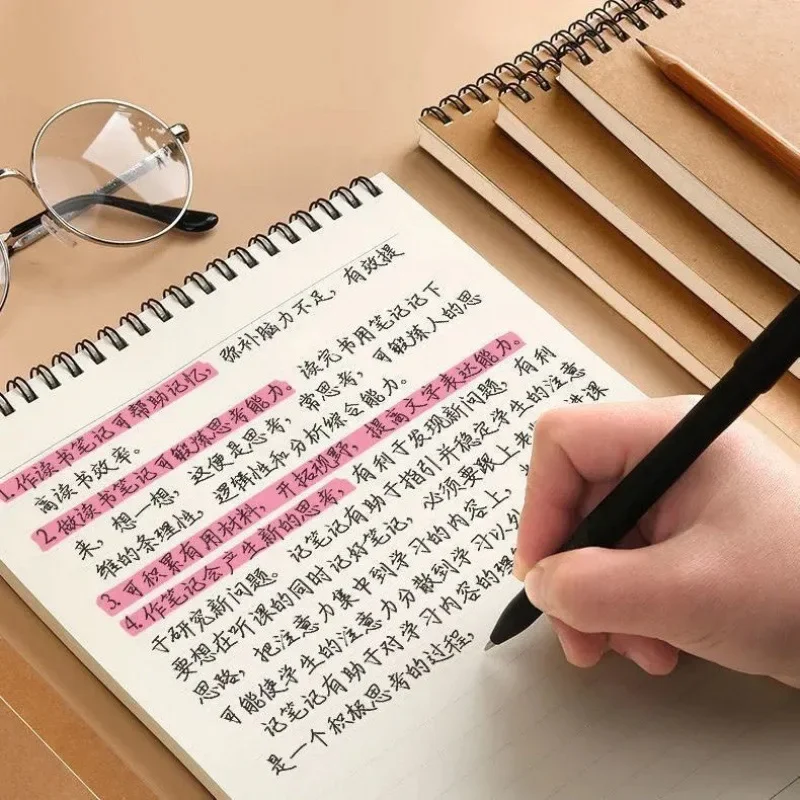 1.作读书笔记可帮助记忆，弥补脑力不足，有效提
高读书效率。
2.做读书笔记可锻炼思考能力。读完书用笔记记下
来，想一想，这便是思考，常思考，可锻炼人的思
维的条理性，逻辑性和分析综合能力。
3.可积累有用材料，开拓视野，提高文字表达能力。
4.作笔记会产生新的思考，有利于发现新问题，有利
于研究新问题。记笔记有助于指引并稳定学生的注意
要想在听课的同时记好笔记，必须要跟上 讲课
思路，把注意力集中到学习的内容上，
可能使学生的注意力分散到学习以外
记笔记有助于对学习内容的理
是一个积极思考的过程，